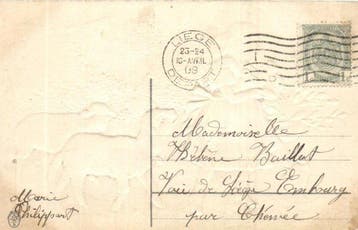 LIEGE
23-24
10-AVRIL
09
DEPART
1
Mademoiselle
Hélène Baillut
Voie de Liège Embourg
par Chênée
Marie
Philippart